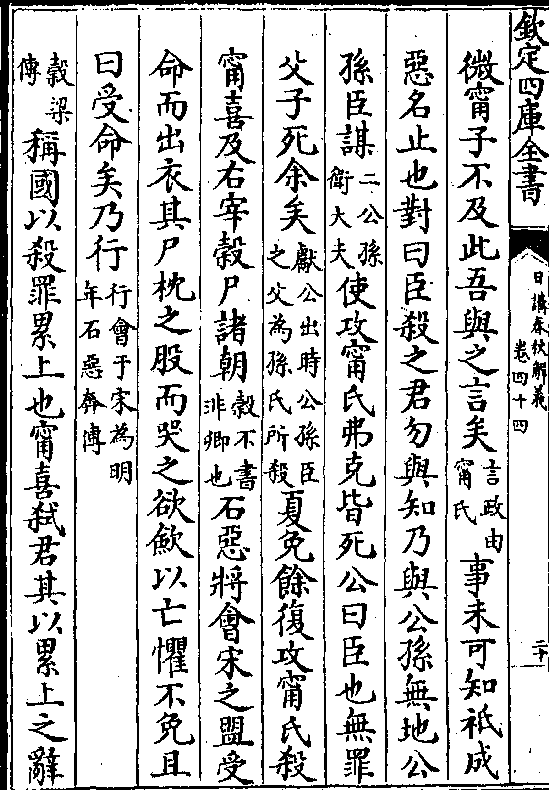 欽定四庫全書
日講春秋解義
卷四十四
二十
微甯子不及此吾與之言矣言政由甯氏事未可知祇成
惡名止也對曰臣殺之君勿與知乃與公孫無地公
孫臣謀二公孫衛大夫使攻甯氏弗克皆死公曰臣也無罪
父子死余矣獻公出時公孫臣之父為孫氏所殺夏免餘復攻甯氏殺
甯喜及右宰榖尸諸朝榖不書非卿也石惡將會宋之盟受
命而出衣其尸枕之股而哭之欲歛以亡懼不免且
曰受命矣乃行行會于宋為明年石惡奔傳
榖梁傳稱國以殺罪累上也甯喜弑君其以累上之辭